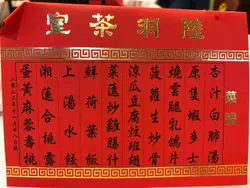 陸羽茶室
菜譜
杏汁白肺湯
原隻蝦多士
燒雲腿乳鴿片
菠蘿生炒骨
涼瓜豆腐炆班翅
菜薳炒雞腸什
鮮荷葉飯
上湯水餃
湘蓮合桃露
蛋黃麻蓉壽桃